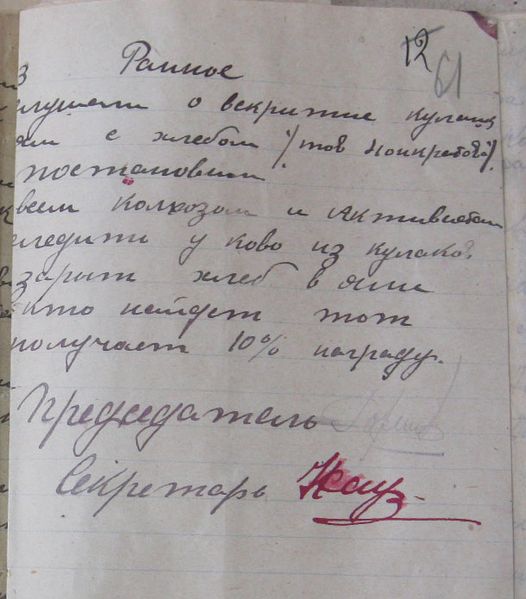 12
61
3 Разное
слушали о вскритие кулацк
ям с хлебом /тов
постановили
всем колхозом и активистам
следити у ково из кулаков
зарыт хлеб в ями
кто найдет тот
получает 10% награду.
Председатель
Секретарь